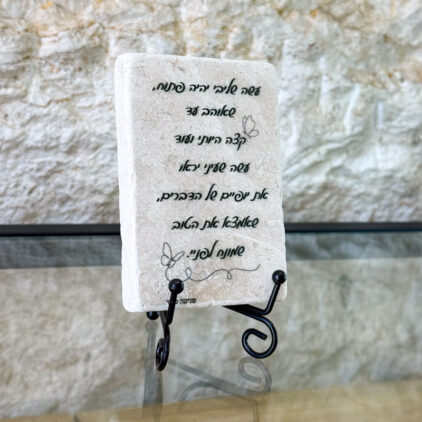 עשה שליבי יהיה פתוח,
שאוהב עד
קצה היותי ועוד
עשה שעיני יראו
את יופיים של הדברים,
שאמצא את הטוב
שמונח לפניי.